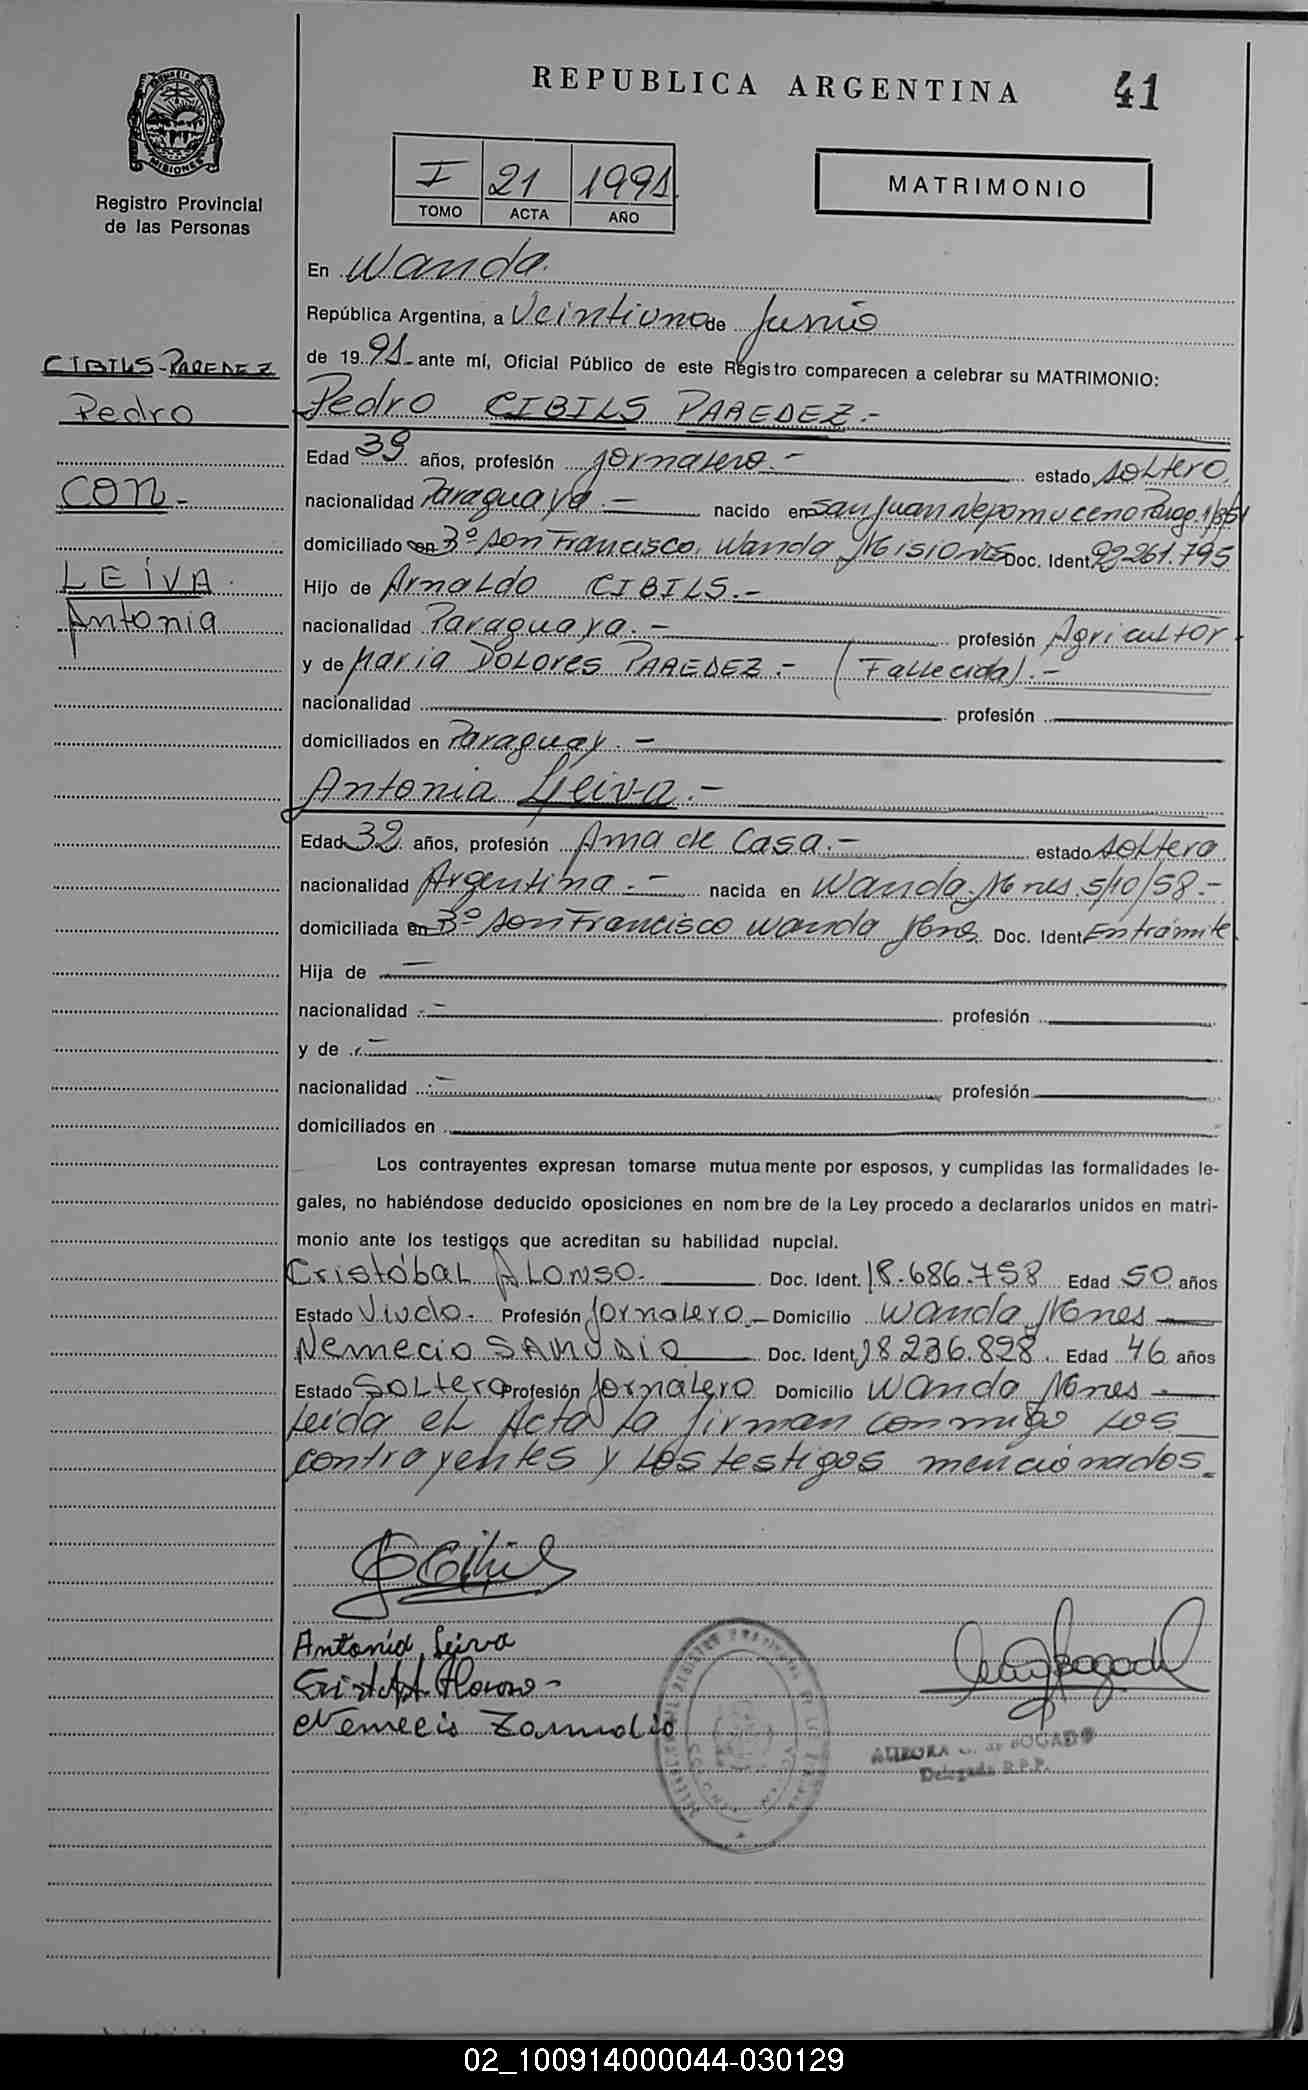 REPUBLICA ARGENTINA 41
MISIONES
Registro Provincial
de las Personas
I 21 1991
TOMO ACTA AÑO
MATRIMONIO
En Wanda.
República Argentina, a Veintiuno de Junio
de 1991 ante mí, Oficial Público de este Registro comparecen a celebrar su MATRIMONIO:
CIBILS-PAREDEZ
Pedro
CON-
LEIVA.
Antonia
Pedro CIBILS PAREDEZ.-
Edad 39 años, profesión Jornalero.- estado Soltero.
nacionalidad Paraguaya.- nacido en San Juan Nepomuceno
domiciliado en Bº San Francisco, Wanda Misiones Doc. Ident. 92.261.795
Hijo de Arnaldo CIBILS.-
nacionalidad Paraguaya.- profesión Agricultor.
y de Maria DOLORES PAREDEZ.- (Fallecida).-
nacionalidad profesión
domiciliados en Paraguay.-
Antonia Leiva.-
Edad 32 años, profesión Ama de Casa.- estado Soltera.
nacionalidad Argentina.- nacida en Wanda Mnes 5/10/58.-
domiciliada en Bº San Francisco Wanda Mnes. Doc. Ident. En trámite.
Hija de -
nacionalidad - profesión
y de -
nacionalidad - profesión
domiciliados en
Los contrayentes expresan tomarse mutuamente por esposos, y cumplidas las formalidades le-
gales, no habiéndose deducido oposiciones en nombre de la Ley procedo a declararlos unidos en matri-
monio ante los testigos que acreditan su habilidad nupcial.
Cristóbal ALONSO. Doc. Ident. 18.686.758 Edad 50 años
Estado Viudo. Profesión Jornalero Domicilio Wanda Mnes
Nemecio SAMUDIO Doc. Ident. 18.236.828. Edad 46 años
Estado Soltero Profesión Jornalero Domicilio Wanda Mnes.
Leida el Acta la firman conmigo los
contrayentes y los testigos mencionados.
Antonia Leiva
Nemecio Zamudio
AURORA BOGADO
Delegada R.P.P.
02_100914000044-030129